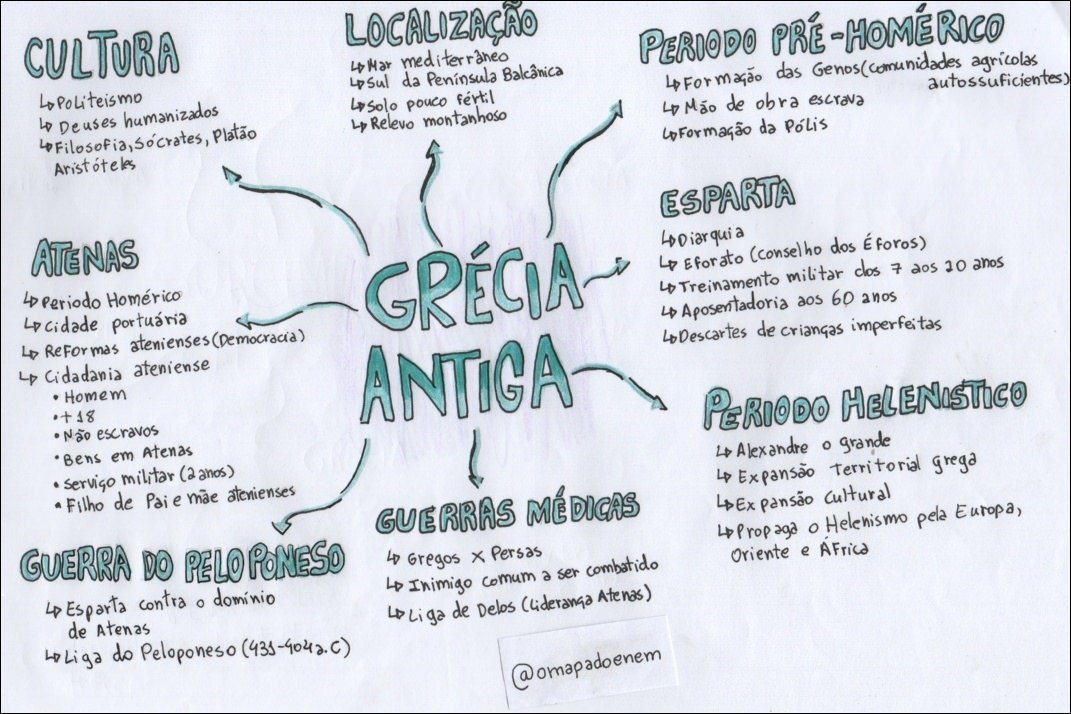 CULTURA
↳Politeísmo
↳Deuses humanizados
↳Filosofia, Sócrates, Platão
Aristóteles
LOCALIZAÇÃO
↳Mar mediterrâneo
↳Sul da Península Balcânica
↳Solo pouco fértil
↳Relevo montanhoso
PERIODO PRÉ-HOMÉRICO
↳Formação das Genos (comunidades agrícolas
autossuficientes)
↳Mão de obra escrava
↳Formação da Pólis
ESPARTA
↳Diarquia
↳Eforato (conselho dos Éforos)
↳Treinamento militar dos 7 aos 20 anos
↳Aposentadoria aos 60 anos
↳Descartes de crianças imperfeitas
ATENAS
↳Periodo Homérico
↳Cidade portuária
↳Reformas atenienses (Democracia)
↳Cidadania ateniense
• Homem
• +18
• Não escravos
• Bens em Atenas
• Serviço militar (2 anos)
• Filho de Pai e mãe atenienses
GRÉCIA
ANTIGA
PERIODO HELENÍSTICO
↳Alexandre o grande
↳Expansão Territorial grega
↳Expansão Cultural
↳Propaga o Helenismo pela Europa,
Oriente e África
GUERRA DO PELOPONESO
↳Esparta contra o domínio
de Atenas
↳Liga do Peloponeso (431-404 a.C)
GUERRAS MÉDICAS
↳Gregos X Persas
↳Inimigo comum a ser combatido
↳Liga de Delos (Liderança Atenas)
@omapadoenem